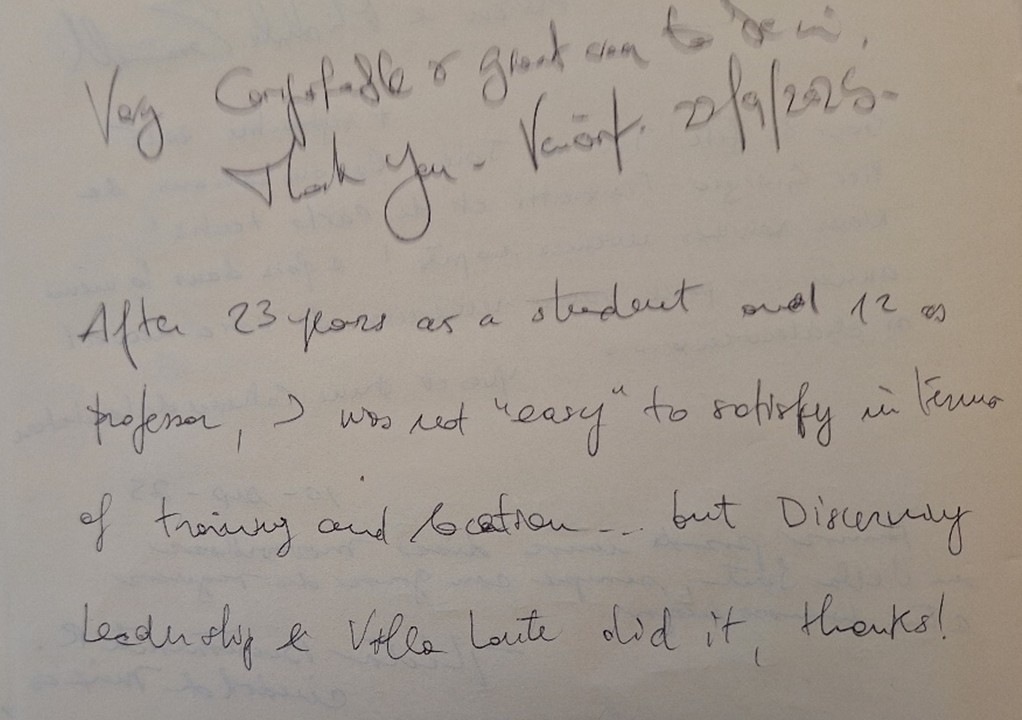 Very Comfortable & great room to be in.
Thank you - 22/9/2025.
After 23 years as a student and 12 as
professor, I was not "easy" to satisfy in terms
of training and location... but Discerning
Leadership & Villa Laute did it, thanks!